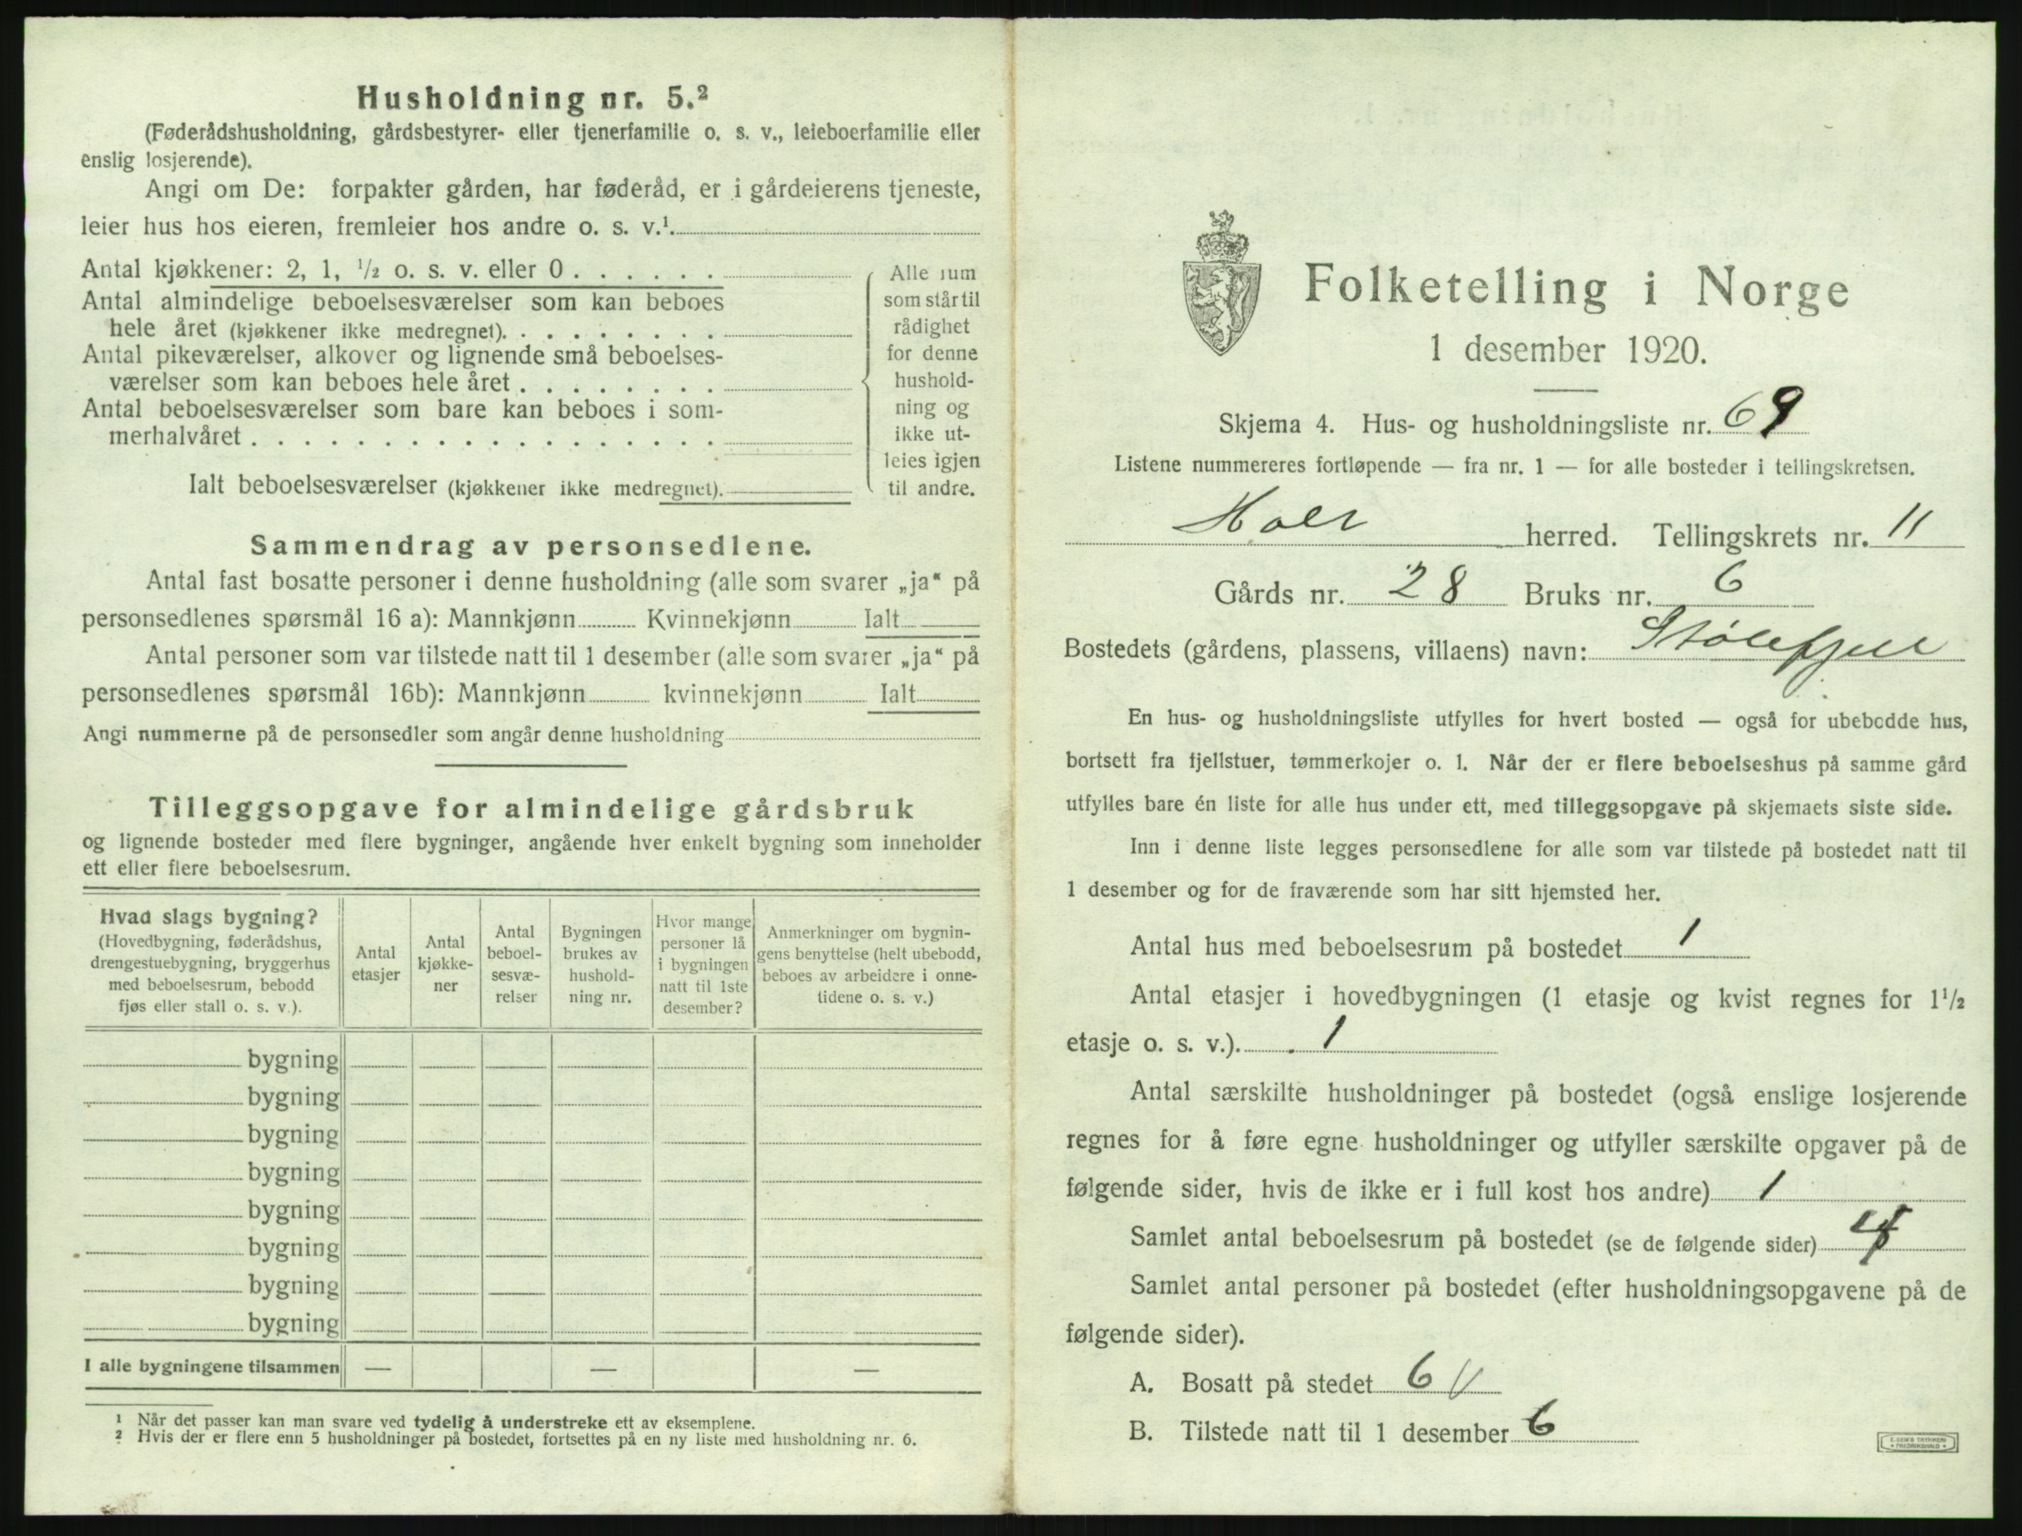 Husholdning nr. 5.²
(Føderådshusholdning, gårdsbestyrer- eller tjenerfamilie o. s. v., leieboerfamilie eller
enslig losjerende).
Angi om De: forpakter gården, har føderåd, er i gårdeierens tjeneste,
leier hus hos eieren, fremleier hos andre o. s. v.¹
Antal kjøkkener: 2, 1, ½ o. s. v. eller 0 . . . . . .
Antal almindelige beboelsesværelser som kan beboes
hele året (kjøkkener ikke medregnet). . . . . . . . .
Antal pikeværelser, alkover og lignende små beboelses-
værelser som kan beboes hele året . . . . . . . .
Antal beboelsesværelser som bare kan beboes i som-
merhalvåret . . . . . . . . . . . . . . . . . .
Ialt beboelsesværelser (kjøkkener ikke medregnet).
Alle rum
som står til
rådighet
for denne
hushold-
ning og
ikke ut-
leies igjen
til andre.
Sammendrag av personsedlene.
Antal fast bosatte personer i denne husholdning (alle som svarer „ja“ på
personsedlenes spørsmål 16 a): Mannkjønn Kvinnekjønn Ialt
Antal personer som var tilstede natt til 1 desember (alle som svarer „ja“ på
personsedlenes spørsmål 16b): Mannkjønn kvinnekjønn Ialt
Angi nummerne på de personsedler som angår denne husholdning
Tilleggsopgave for almindelige gårdsbruk
og lignende bosteder med flere bygninger, angående hver enkelt bygning som inneholder
ett eller flere beboelsesrum.
Hvad slags bygning?
(Hovedbygning, føderådshus,
drengestuebygning, bryggerhus
med beboelsesrum, bebodd
fjøs eller stall o. s. v.).
Antal
etasjer
Antal
kjøkke-
ner
Antal
beboel-
sesvæ-
relser
Bygningen
brukes av
hushold-
ning nr.
Hvor mange
personer lå
i bygningen
natt til 1ste
desember?
Anmerkninger om bygnin-
gens benyttelse (helt ubebodd,
beboes av arbeidere i onne-
tidene o. s. v.)
bygning
bygning
bygning
bygning
bygning
bygning
bygning
bygning
I alle bygningene tilsammen — — —
¹ Når det passer kan man svare ved tydelig å understreke ett av eksemplene.
² Hvis der er flere enn 5 husholdninger på bostedet, fortsettes på en ny liste med husholdning nr. 6.
Folketelling i Norge
1 desember 1920.
Skjema 4. Hus- og husholdningsliste nr. 69
Listene nummereres fortløpende — fra nr. 1 — for alle bosteder i tellingskretsen.
herred. Tellingskrets nr. 11
Gårds nr. 28 Bruks nr. 6
Bostedets (gårdens, plassens, villaens) navn: Stølefjell
En hus- og husholdningsliste utfylles for hvert bosted — også for ubebodde hus,
bortsett fra fjellstuer, tømmerkojer o. l. Når der er flere beboelseshus på samme gård
utfylles bare én liste for alle hus under ett, med tilleggsopgave på skjemaets siste side.
Inn i denne liste legges personsedlene for alle som var tilstede på bostedet natt til
1 desember og for de fraværende som har sitt hjemsted her.
Antal hus med beboelsesrum på bostedet 1
Antal etasjer i hovedbygningen (1 etasje og kvist regnes for 1½
etasje o. s. v.). 1
Antal særskilte husholdninger på bostedet (også enslige losjerende
regnes for å føre egne husholdninger og utfyller særskilte opgaver på de
følgende sider, hvis de ikke er i full kost hos andre) 1
Samlet antal beboelsesrum på bostedet (se de følgende sider)
Samlet antal personer på bostedet (efter husholdningsopgavene på de
følgende sider).
A. Bosatt på stedet 6
B. Tilstede natt til 1 desember 6